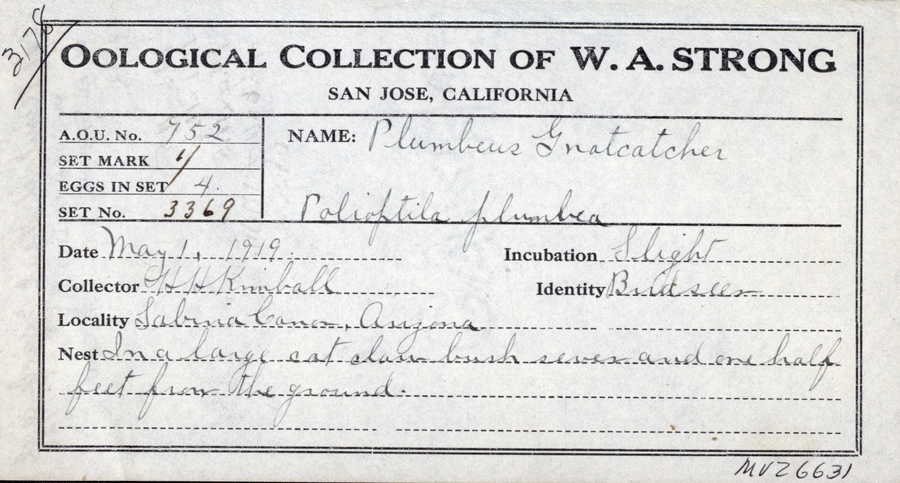 3178
OOLOGICAL COLLECTION OF W. A. STRONG
SAN JOSE, CALIFORNIA
A.O.U. No. 752
SET MARK 1/
EGGS IN SET 4.
SET No. 3369
NAME: Plumbeus Gnatcatcher
Polioptila plumbea
Date May 1, 1919.
Incubation Slight
Collector H H Kimball
Identity Bird seen
Locality Sabina Canon, Arizona
Nest In a large cat claw bush seven and one half
feet from the ground.
MVZ 6631